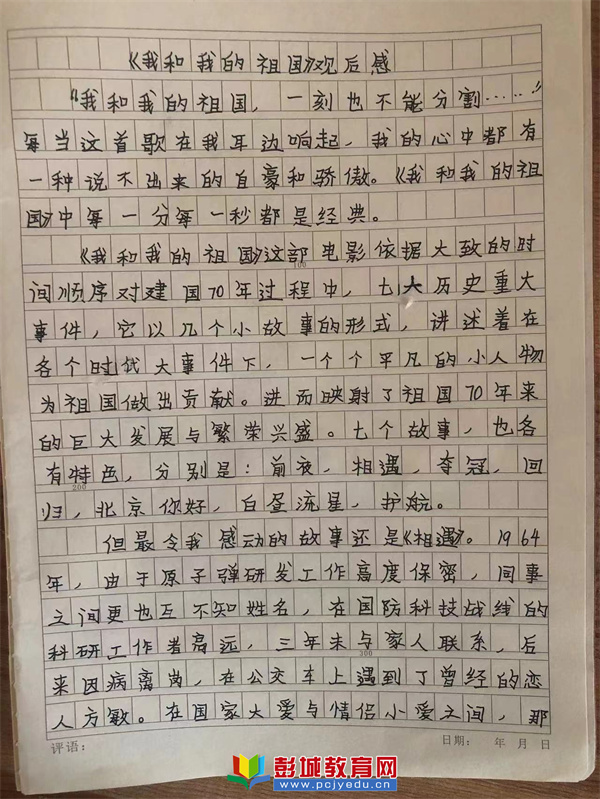 《我和我的祖国》观后感
“我和我的祖国，一刻也不能分割……”
每当这首歌在我耳边响起，我的心中都有
一种说不出来的自豪和骄傲。《我和我的祖
国》中每一分每一秒都是经典。
《我和我的祖国》这部电影依据大致的时
100
间顺序对建国70年过程中，七大历史重大
事件，它以几个小故事的形式，讲述着在
各个时代大事件下，一个个平凡的小人物
为祖国做出贡献。进而映射了祖国70年来
的巨大发展与繁荣兴盛。七个故事，也各
有特色，分别是：前夜，相遇，夺冠，回
200
归，北京你好，白昼流星，护航。
但最令我感动的故事还是《相遇》。1964
年，由于原子弹研发工作高度保密，同事
之间更也互不知姓名，在国防科技战线的
科研工作者高远，三年未与家人联系，后
300
来因病离岗，在公交车上遇到了曾经的恋
人方敏。在国家大爱与情侣小爱之间，那
评语： 日期： 年 月 日
彭城教育网
www.pcjyedu.cn